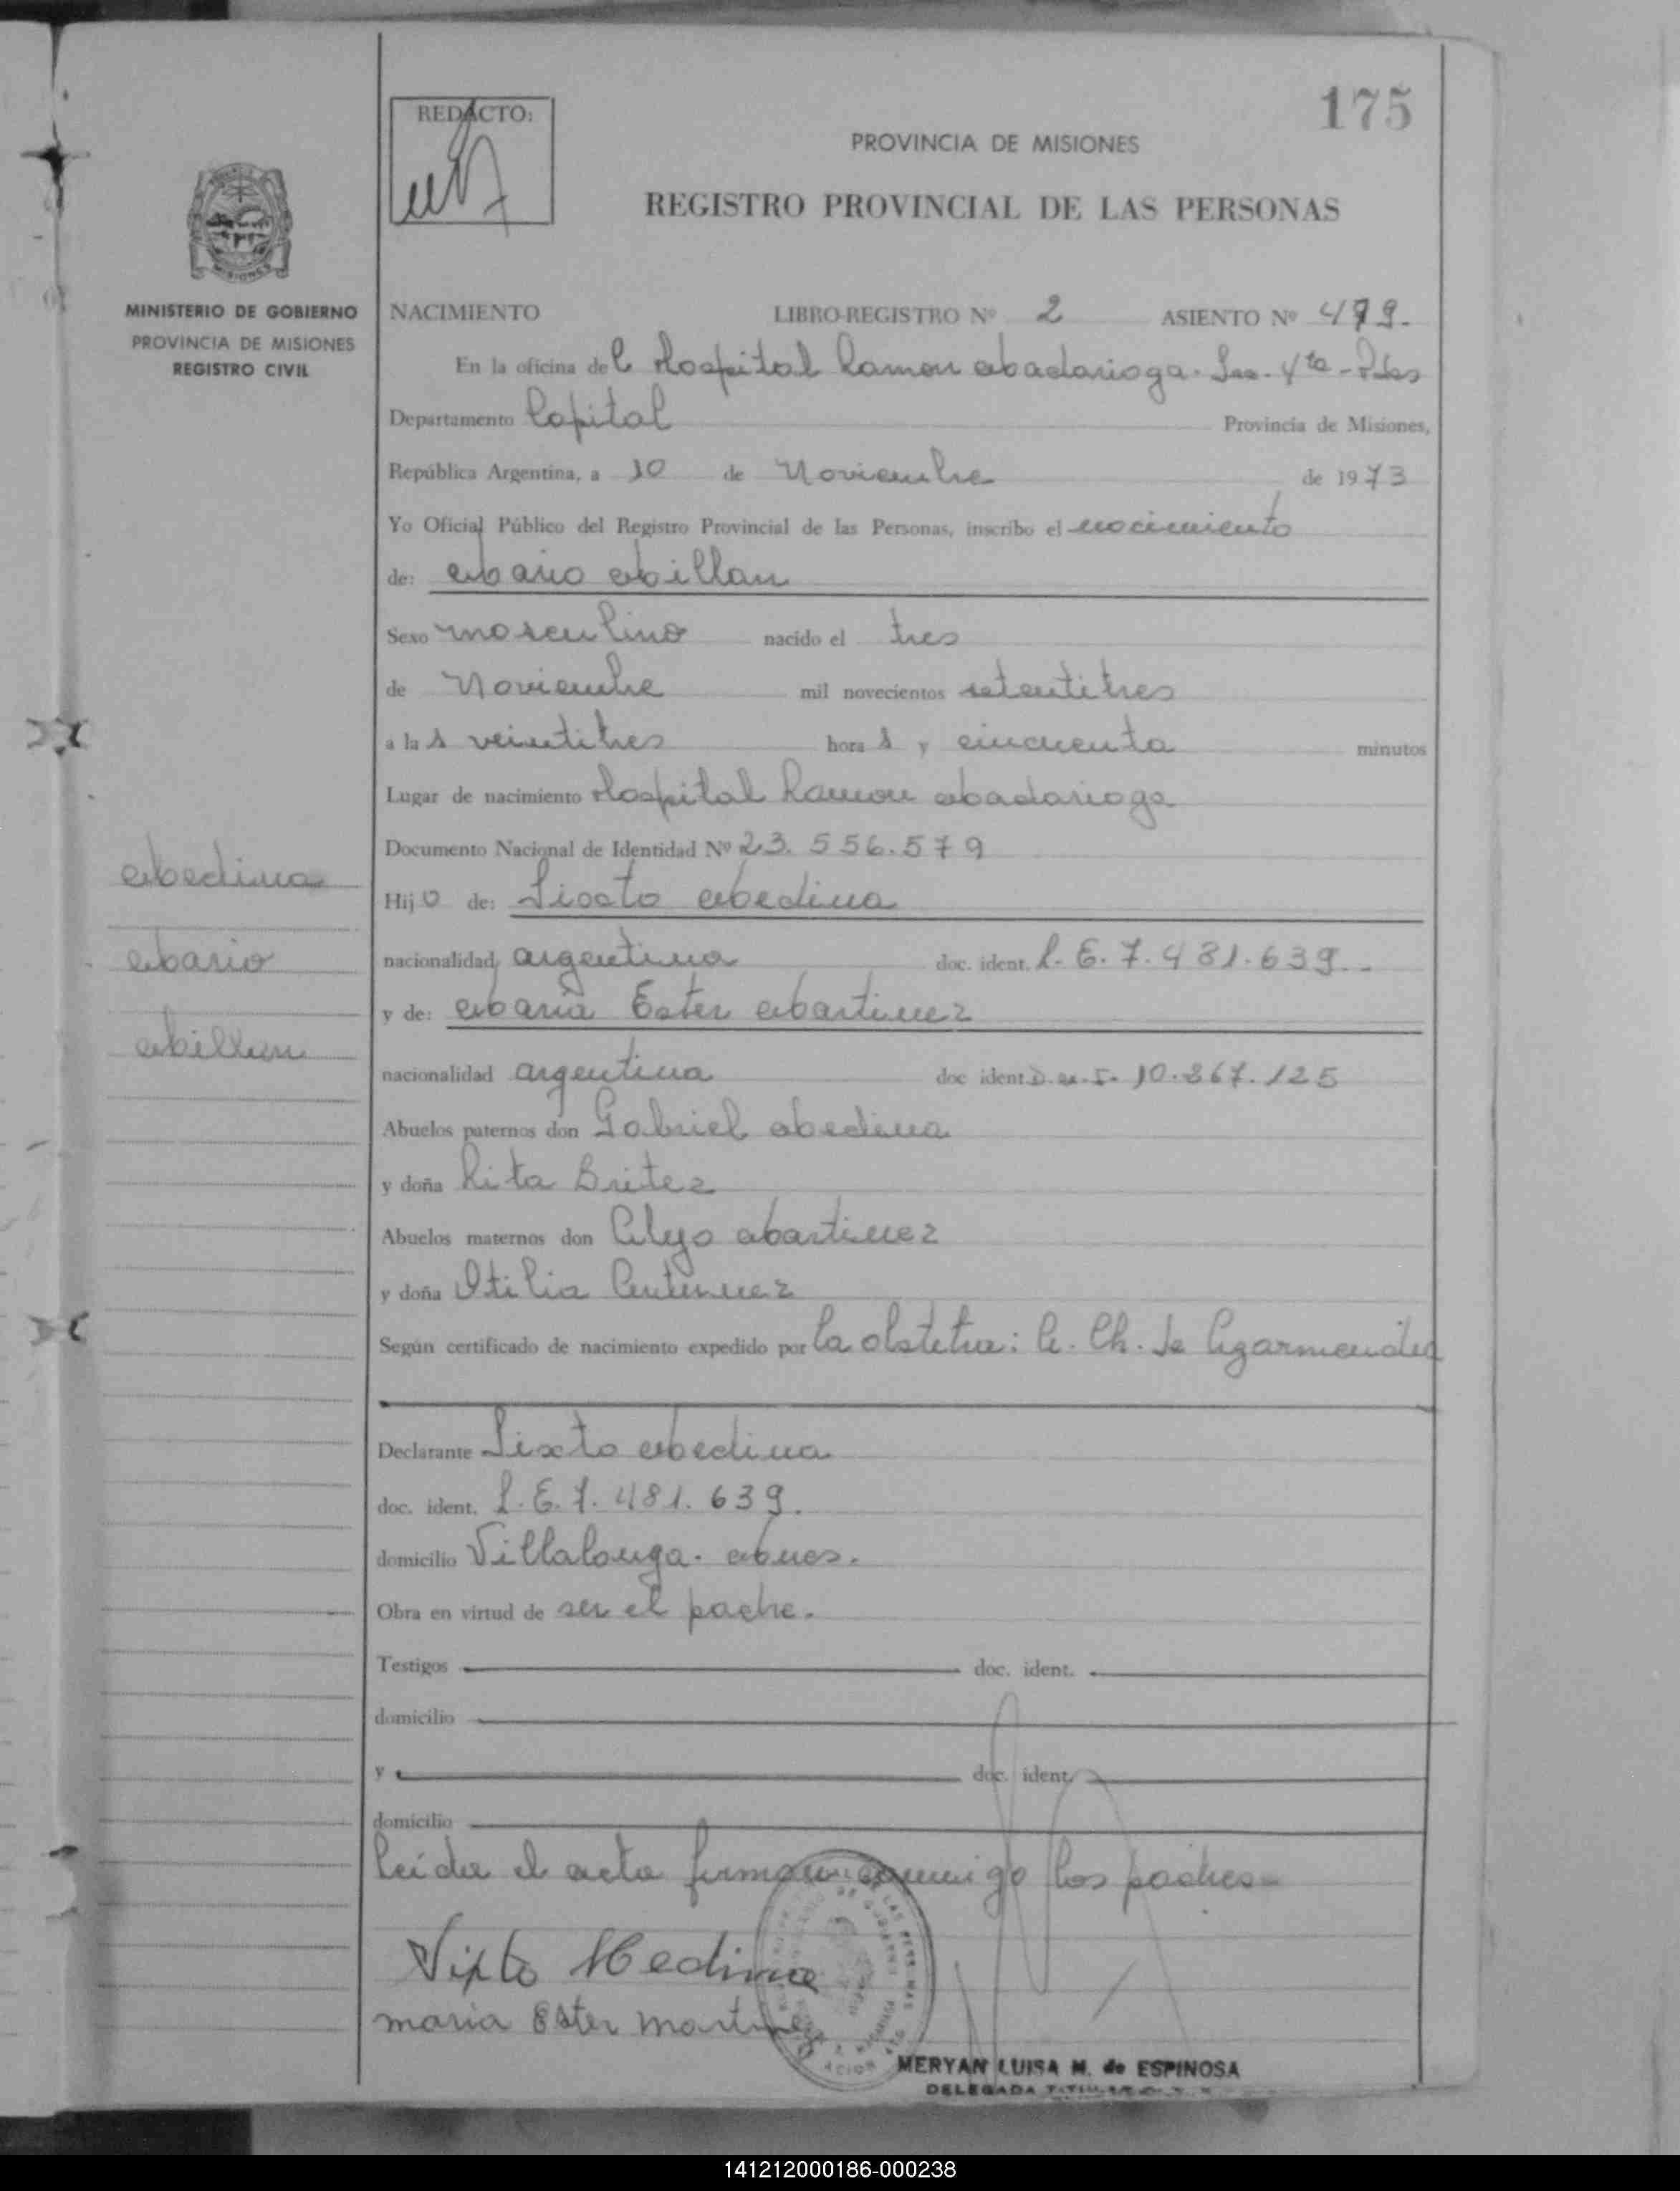 175
REDACTO:
PROVINCIA DE MISIONES
REGISTRO PROVINCIAL DE LAS PERSONAS
MISIONES
MINISTERIO DE GOBIERNO
PROVINCIA DE MISIONES
REGISTRO CIVIL
NACIMIENTO LIBRO-REGISTRO Nº 2 ASIENTO Nº 479.
En la oficina del Hospital Ramon Madariaga. Sec. 4ta - Pdas
Departamento Capital Provincia de Misiones,
República Argentina, a 10 de Noviembre de 1973
Yo Oficial Público del Registro Provincial de las Personas, inscribo el nacimiento
de: Mario Millan
Sexo masculino nacido el tres
de Noviembre mil novecientos setentitres
a las veintitres horas y cincuenta minutos
Lugar de nacimiento Hospital Ramon Madariaga
Documento Nacional de Identidad Nº 23.556.579
Medina
Hijo de: Sixto Medina
Mario
nacionalidad argentina doc. ident. L.E. 7.481.639.-
y de: Maria Ester Martinez
Millan
nacionalidad argentina doc ident. 10.267.125
Abuelos paternos don Gabriel Medina
y doña Rita Britez
Abuelos maternos don Alejo Martinez
y doña Otilia
Según certificado de nacimiento expedido por la obstetra: A. Ch. de Agarmendia
Declarante Sixto Medina
doc. ident. L.E. 7.481.639.
domicilio Villalonga. Mnes.
Obra en virtud de ser el padre.
Testigos doc. ident.
domicilio
y doc. ident.
domicilio
Leida el acta firman conmigo los padres-
Sixto Medina
maria Ester Martinez
MERYAN LUISA M. de ESPINOSA
DELEGADA TITULAR
141212000186-000238